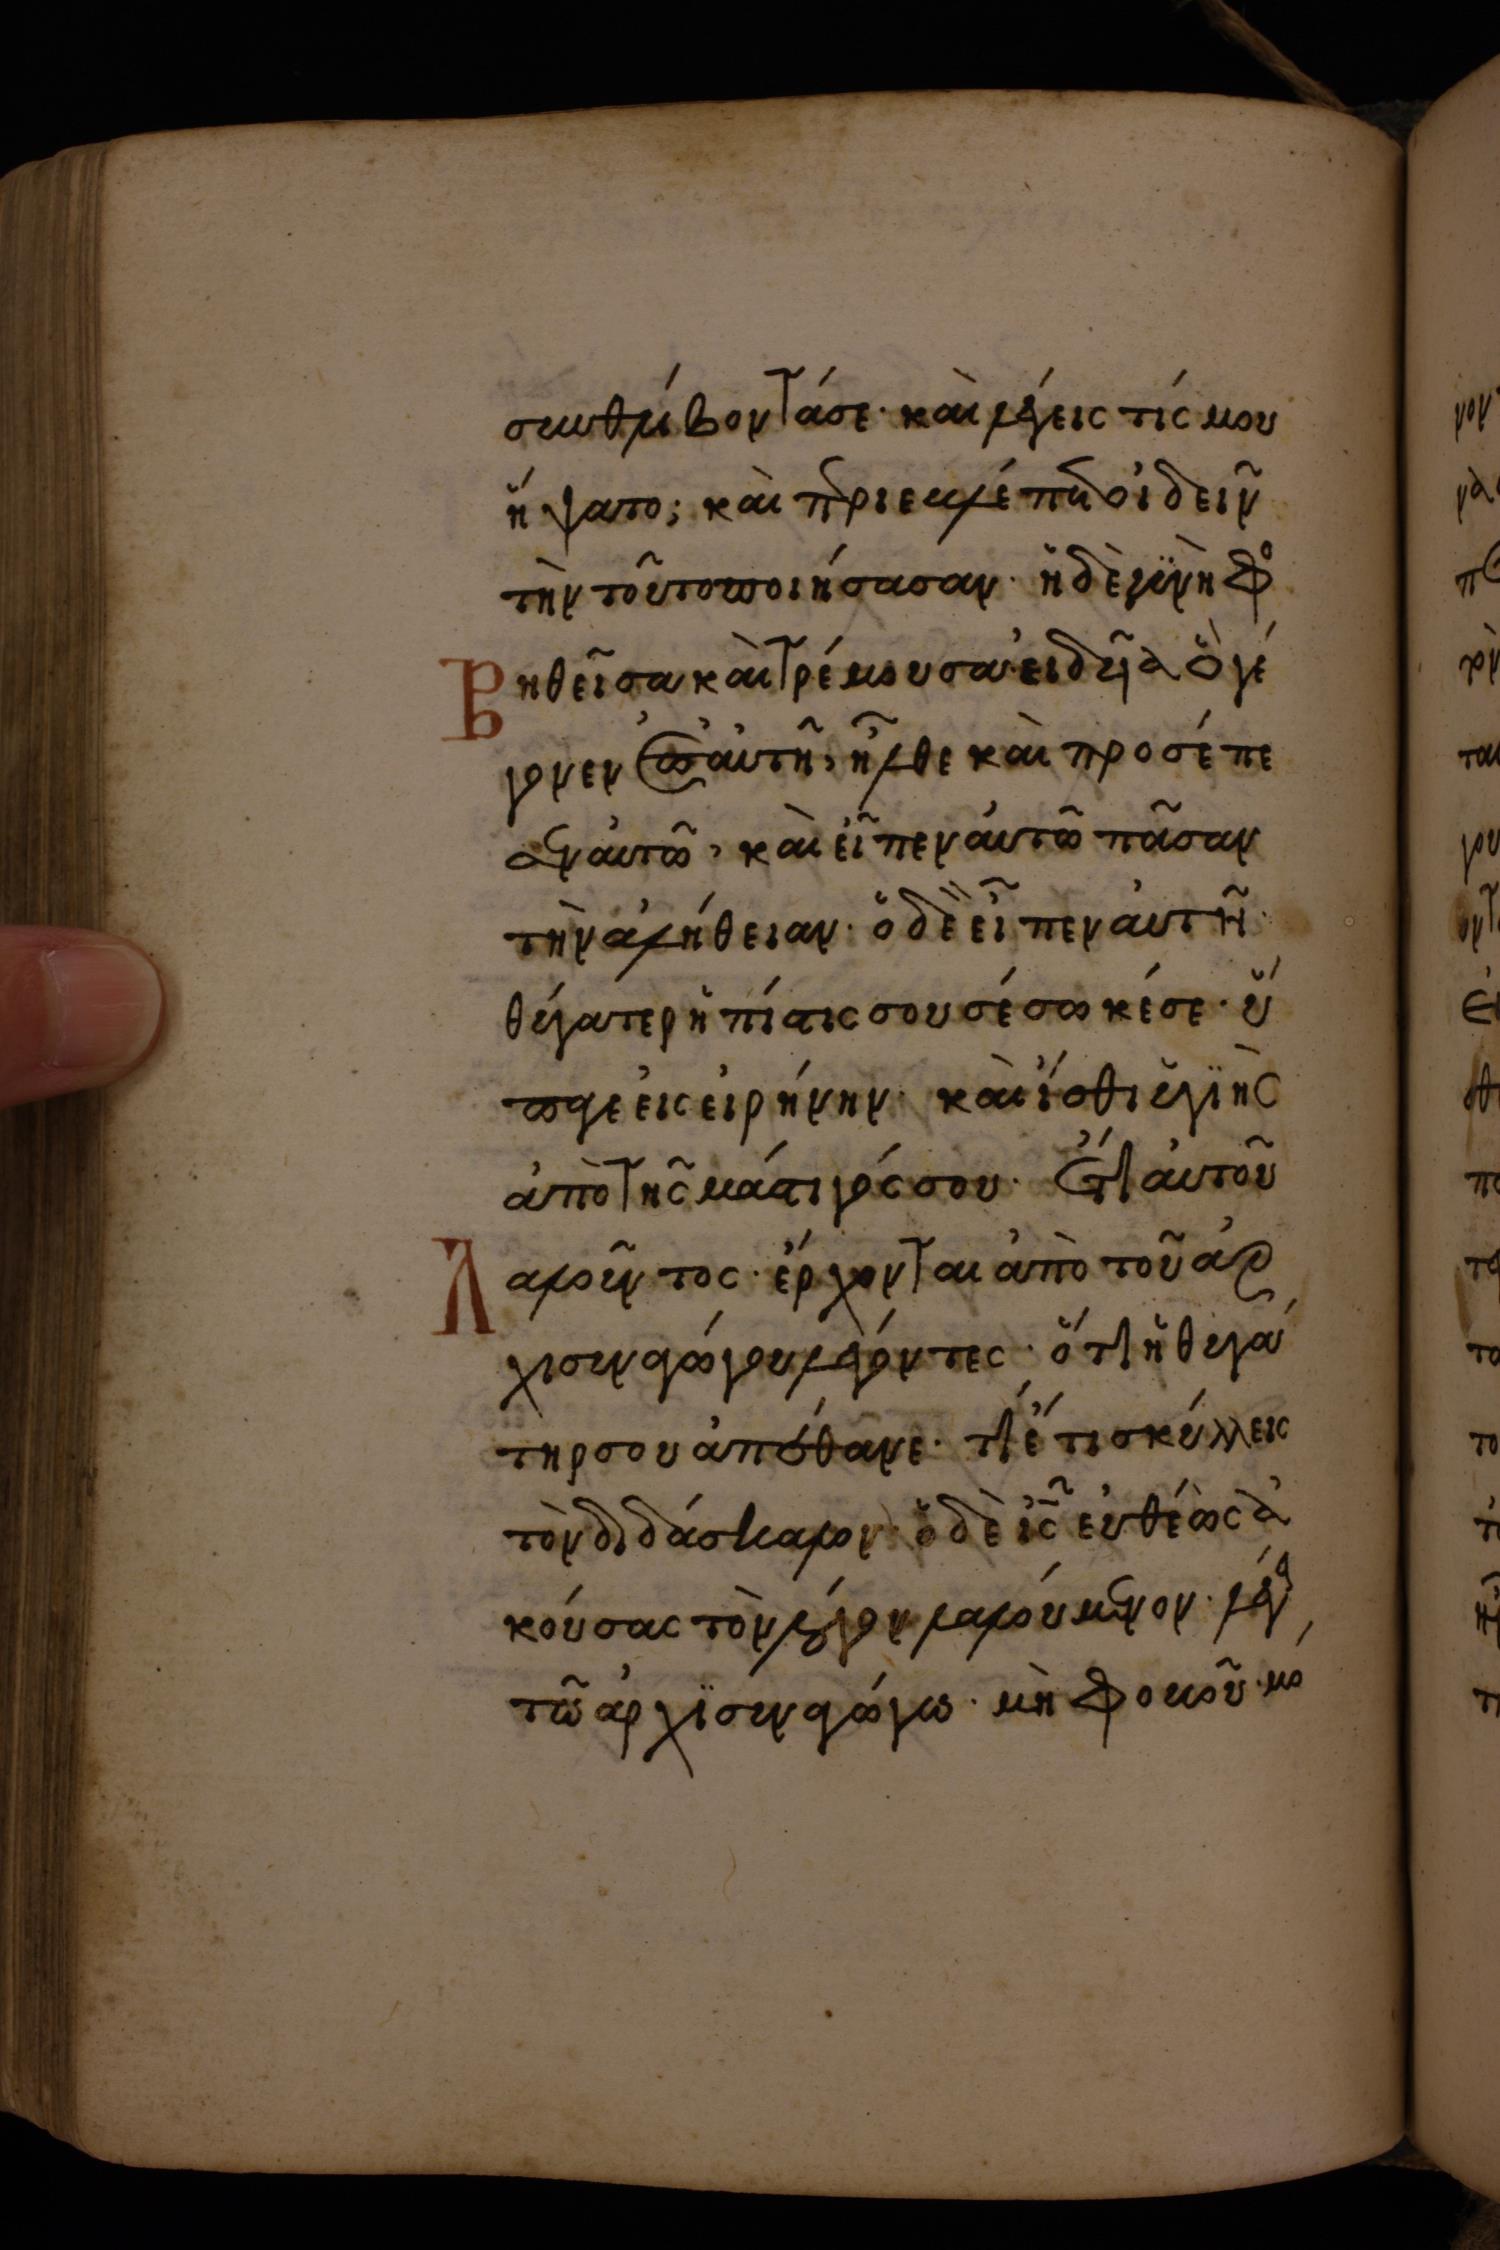 συνθλίβοντά σε· καὶ λέγεις τίς μου
ἥψατο; καὶ περιεβλέπετο ἰδεῖν
τὴν τοῦτο ποιήσασαν· ἡ δὲ γϋνὴ φο
βηθεῖσα καὶ τρέμουσα· εἰδυῖα ὃ γέ
γονεν ἐπ' αὐτῆ, ἦλθε καὶ προσέπε
σεν αὐτῶ, καὶ εἶπεν αὐτῶ πᾶσαν
τὴν ἀλήθειαν· ὁ δὲ εἶπεν αὐτῆ·
θύγατερ ἡ πίστις σου σέσωκέ σε· ὕ
παγε εἰς εἰρήνην· καὶ ἴσθι ὑγιὴς
ἀπὸ τῆς μάστιγός σου· Ἔτι αὐτοῦ
λαλοῦντος· ἔρχονται ἀπὸ τοῦ ἀρ
χισυναγώγου λέγοντες· ὅτι ἡ θυγά
τηρ σου ἀπέθανε· τί ἔτι σκύλλεις
τὸν διδάσκαλον· ὁ δὲ ις εὐθέως ἀ
κούσας τὸν λόγον λαλούμενον· λέγει
τῶ ἀρχϊσυναγώγω· μὴ φοβοῦ· μό